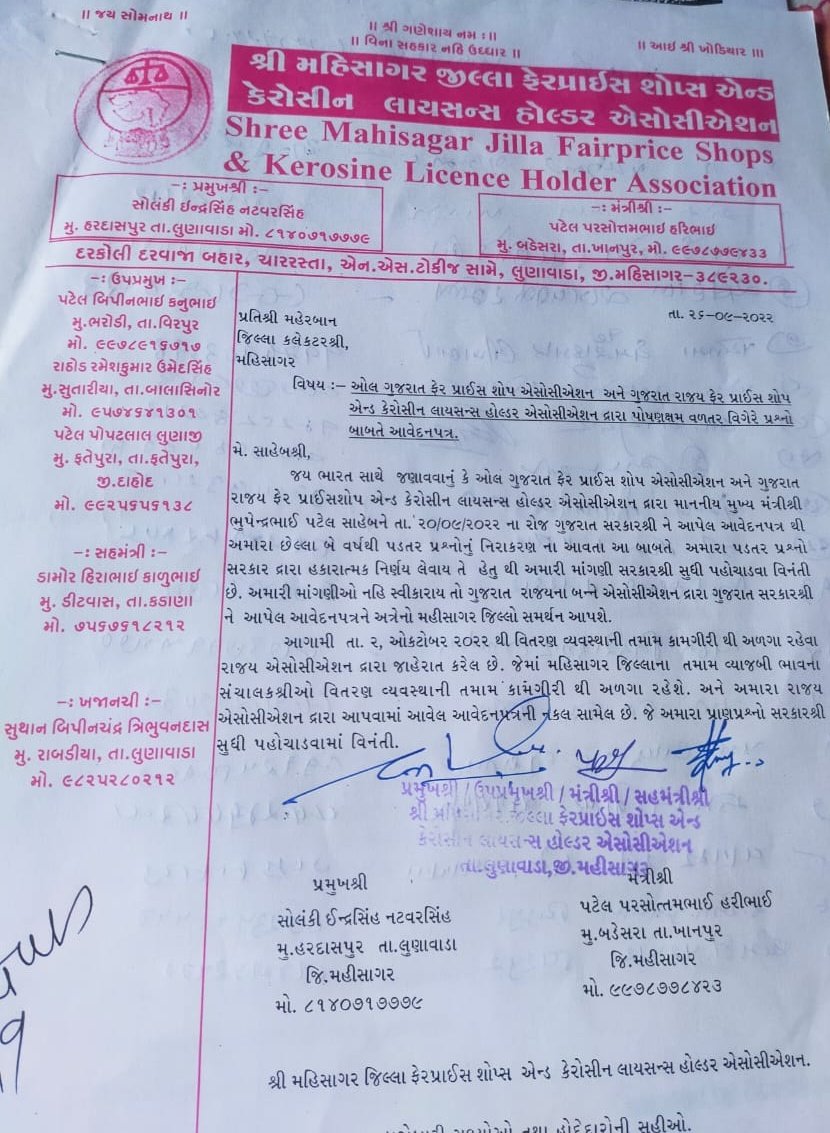 ॥ જય સોમનાથ ॥
॥ શ્રી ગણેશાય નમઃ ॥
॥ વિના સહકાર નહિ ઉધ્ધાર ॥
॥ આઈ શ્રી ખોડિયાર ॥
શ્રી મહિસાગર જીલ્લા ફેરપ્રાઈસ શોપ્સ એન્ડ
કેરોસીન લાયસન્સ હોલ્ડર એસોસીએશન
Shree Mahisagar Jilla Fairprice Shops
& Kerosine Licence Holder Association
-: પ્રમુખશ્રી :-
સોલંકી ઈન્દ્રસિંહ નટવરસિંહ
મુ. હરદાસપુર તા.લુણાવાડા મો. ૮૧૪૦૭૧૭૭૭૯
-: મંત્રીશ્રી :-
પટેલ પરસોત્તમભાઈ હરિભાઈ
મુ. બડેસરા, તા.ખાનપુર, મો. ૯૯૭૮૭૭૯૪૩૩
દરકોલી દરવાજા બહાર, ચારરસ્તા, એન.એસ.ટોકીજ સામે, લુણાવાડા, જી.મહિસાગર-૩૮૯૨૩૦.
-: ઉપપ્રમુખ :-
પટેલ બિપીનભાઈ કનુભાઈ
મુ.ભરોડી, તા.વિરપુર
મો. ૯૯૭૮૯૧૬૭૧૭
રાઠોડ રમેશકુમાર ઉમેદસિંહ
મુ.સુતારીયા, તા.બાલાસિનોર
મો. ૯૫૭૪૬૪૧૩૦૧
પટેલ પોપટલાલ લુણાજી
મુ. ફતેપુરા, તા.ફતેપુરા,
જી.દાહોદ
મો. ૯૯૨૫૬૫૬૧૩૮
-: સહમંત્રી :-
ડામોર હિરાભાઈ કાળુભાઈ
મુ. ડીટવાસ, તા.કડાણા
મો. ૭૫૬૭૬૧૮૨૧૨
-: ખજાનચી :-
સુથાન બિપીનચંદ્ર ત્રિભુવનદાસ
મુ. રાબડીયા, તા.લુણાવાડા
મો. ૯૮૨૫૨૮૦૨૧૨
તા. ૨૬-૦૯-૨૦૨૨
પ્રતિશ્રી મહેરબાન
જિલ્લા કલેકટરશ્રી,
મહિસાગર
વિષય :- ઓલ ગુજરાત ફેર પ્રાઈસ શોપ એસોસીએશન અને ગુજરાત રાજય ફેર પ્રાઈસ શોપ
એન્ડ કેરોસીન લાયસન્સ હોલ્ડર એસોસીએશન દ્રારા પોષણક્ષમ વળતર વિગેરે પ્રશ્નો
બાબતે આવેદનપત્ર.
મે. સાહેબશ્રી,
જય ભારત સાથે જણાવવાનું કે ઓલ ગુજરાત ફેર પ્રાઈસ શોપ એસોસીએશન અને ગુજરાત
રાજય ફેર પ્રાઈસશોપ એન્ડ કેરોસીન લાયસન્સ હોલ્ડર એસોસીએશન દ્રારા માનનીય મુખ્ય મંત્રીશ્રી
ભુપેન્દ્રભાઈ પટેલ સાહેબને તા. ૨૦/૦૯/૨૦૨૨ ના રોજ ગુજરાત સરકારશ્રી ને આપેલ આવેદનપત્ર થી
અમારા છેલ્લા બે વર્ષથી પડતર પ્રશ્નોનું નિરાકરણ ના આવતા આ બાબતે અમારા પડતર પ્રશ્નો
સરકાર દ્રારા હકારાત્મક નિર્ણય લેવાય તે હેતુ થી અમારી માંગણી સરકારશ્રી સુધી પહોચાડવા વિનંતી
છે. અમારી માંગણીઓ નહિ સ્વીકારાય તો ગુજરાત રાજયના બન્ને એસોસીએશન દ્રારા ગુજરાત સરકારશ્રી
ને આપેલ આવેદનપત્રને અત્રેનો મહીસાગર જિલ્લો સમર્થન આપશે.
આગામી તા. ૨, ઓકટોબર ૨૦૨૨ થી વિતરણ વ્યવસ્થાની તમામ કામગીરી થી અળગા રહેવા
રાજય એસોસીએશન દ્રારા જાહેરાત કરેલ છે. જેમાં મહિસાગર જિલ્લાના તમામ વ્યાજબી ભાવના
સંચાલકશ્રીઓ વિતરણ વ્યવસ્થાની તમામ કામગીરી થી અળગા રહેશે. અને અમારા રાજય
એસોસીએશન દ્રારા આપવામાં આવેલ આવેદનપત્રની નકલ સામેલ છે. જે અમારા પ્રાણપ્રશ્નો સરકારશ્રી
સુધી પહોચાડવામાં વિનંતી.
પ્રમુખશ્રી / ઉપપ્રમુખશ્રી / મંત્રીશ્રી / સહમંત્રીશ્રી
શ્રી મહિસાગર જિલ્લા ફેરપ્રાઈસ શોપ્સ એન્ડ
કેરોસીન લાયસન્સ હોલ્ડર એસોસીએશન
તા.લુણાવાડા,જી.મહીસાગર
પ્રમુખશ્રી
સોલંકી ઈન્દ્રસિંહ નટવરસિંહ
મુ.હરદાસપુર તા.લુણાવાડા
જિ.મહીસાગર
મો. ૮૧૪૦૭૧૭૭૭૯
મંત્રીશ્રી
પટેલ પરસોત્તમભાઈ હરીભાઈ
મુ.બડેસરા તા.ખાનપુર
જિ.મહીસાગર
મો. ૯૯૭૮૭૭૮૪૨૩
શ્રી મહિસાગર જિલ્લા ફેરપ્રાઈસ શોપ્સ એન્ડ કેરોસીન લાયસન્સ હોલ્ડર એસોસીએશન.
તથા હોદ્દેદારોની સહીઓ.